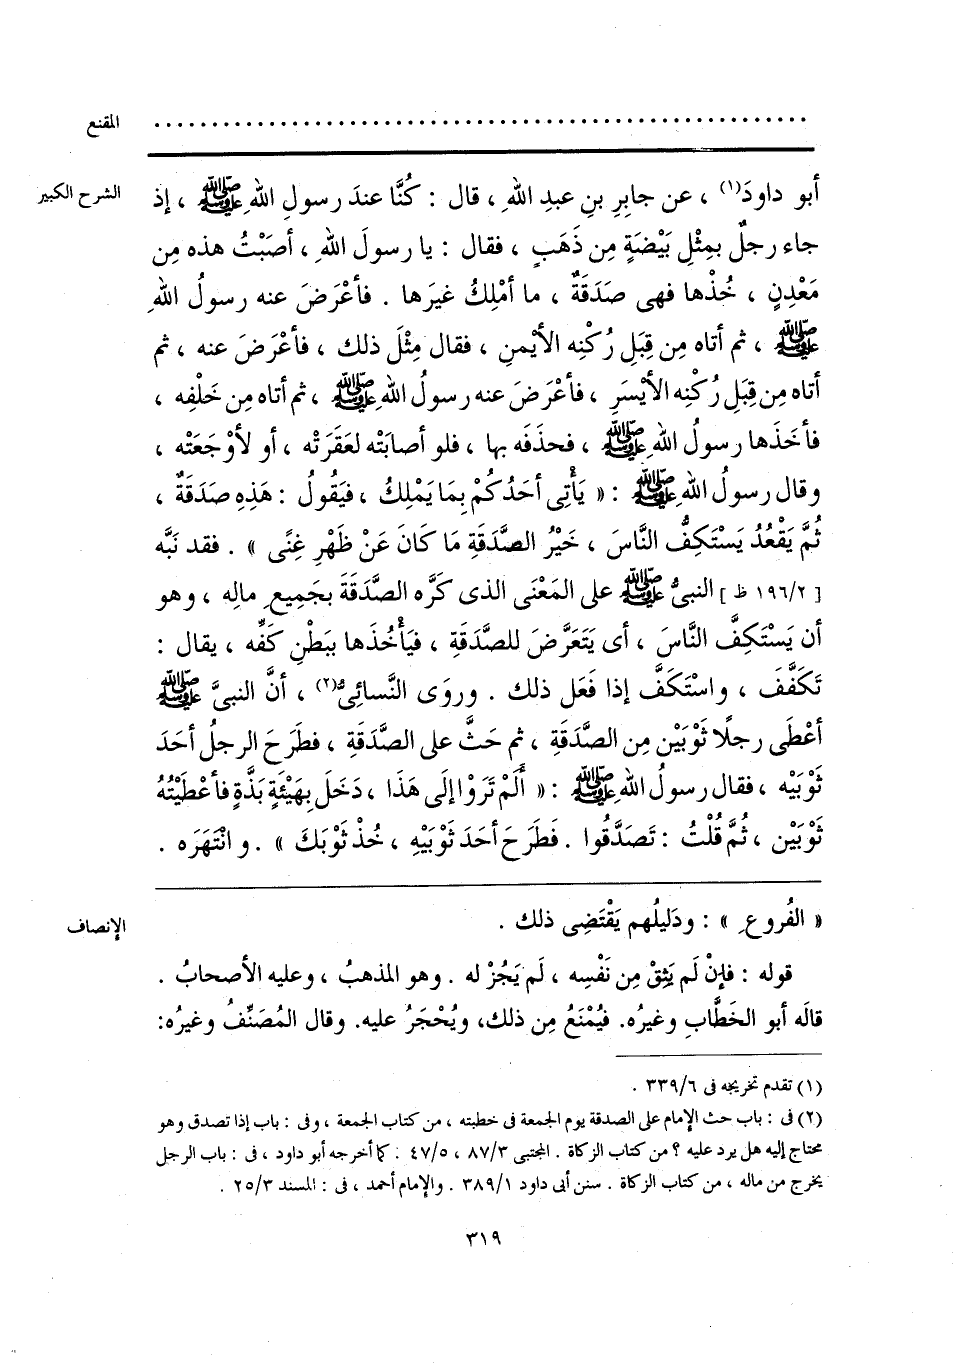 المقنع ................................................
الشرح الكبير
أبو داودَ(١) ، عن جابِرِ بنِ عبدِ اللهِ ، قال : كُنَّا عندَ رسولِ اللهِ ﷺ ، إذ
جاء رجلٌ بمِثْلِ بَيْضَةٍ مِن ذَهَبٍ ، فقال : يا رسولَ اللهِ ، أصَبْتُ هذه مِن
مَعْدِنٍ ، خُذْها فهى صَدَقَةٌ ، ما أمْلِكُ غيرَها . فأعْرَضَ عنه رسولُ اللهِ
ﷺ ، ثم أتاه مِن قِبَلِ رُكْنِه الأيْمنِ ، فقال مِثْلَ ذلك ، فأعْرَضَ عنه ، ثم
أتاه مِن قِبَلِ رُكْنِه الأيْسَرِ ، فأعْرَضَ عنه رسولُ اللهِ ﷺ ، ثم أتاه مِن خَلْفِه ،
فأخَذَها رسولُ اللهِ ﷺ ، فحذَفَه بها ، فلو أصابَتْه لعَقَرَتْه ، أو لأوْجَعَتْه ،
وقال رسولُ اللهِ ﷺ : « يَأْتِى أحَدُكُمْ بِمَا يَمْلِكُ ، فيَقُولُ : هَذِهِ صَدَقَةٌ ،
ثُمَّ يَقْعُدُ يَسْتَكِفُّ النَّاسَ ، خَيْرُ الصَّدَقَةِ مَا كَانَ عَنْ ظَهْرِ غِنًى » . فقد نَبَّه
[ ١٩٦/٢ ظ ] النبىُّ ﷺ على المَعْنَى الذى كَرَّه الصَّدَقَةَ بجَمِيعِ مالِه ، وهو
أن يَسْتَكِفَّ النَّاسَ ، أى يَتَعَرَّضَ للصَّدَقَةِ ، فيَأْخُذَها ببَطْنِ كَفِّه ، يقال :
تَكَفَّفَ ، واسْتَكَفَّ إذا فَعَل ذلك . وروَى النَّسائِىُّ(٢) ، أنَّ النبىَّ ﷺ
أعْطَى رجلًا ثَوْبَيْن مِن الصَّدَقَةِ ، ثم حَثَّ على الصَّدَقَةِ ، فطَرحَ الرجلُ أحَدَ
ثَوْبَيْه ، فقال رسولُ اللهِ ﷺ : « أَلَمْ تَرَوْا إلَى هَذَا ، دَخَلَ بِهَيْئَةٍ بَذَّةٍ فأعْطَيْتُهُ
ثَوْبَيْن ، ثُمَّ قُلْتُ : تَصَدَّقُوا . فَطَرَحَ أحَدَ ثَوْبَيْهِ ، خُذْ ثَوْبَكَ » . وانْتَهَرَه .
الإنصاف
« الفُروعِ » : ودَليلُهم يَقْتَضِى ذلك .
قوله : فإنْ لَم يَثِقْ مِن نَفْسِه ، لَم يَجُزْ له . وهو المذهبُ ، وعليه الأصحابُ .
قالَه أبو الخَطَّابِ وغيرُه. فيُمْنَعُ مِن ذلك، ويُحْجَرُ عليه. وقال المُصَنِّفُ وغيرُه:
(١) تقدم تخريجه فى ٣٣٩/٦ .
(٢) فى : باب حث الإمام على الصدقة يوم الجمعة فى خطبته ، من كتاب الجمعة ، وفى : باب إذا تصدق وهو
محتاج إليه هل يرد عليه ؟ من كتاب الزكاة . المجتبى ٨٧/٣ ، ٤٧/٥ . كما أخرجه أبو داود ، فى : باب الرجل
يخرج من ماله ، من كتاب الزكاة . سنن أبى داود ٣٨٩/١ . والإمام أحمد ، فى : المسند ٢٥/٣ .
٣١٩